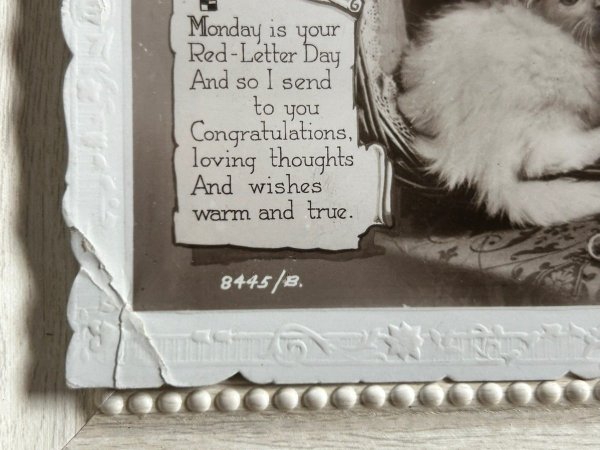 Monday is your
Red-Letter Day
And so I send
to you
Congratulations,
loving thoughts
And wishes
warm and true.
8445/B.